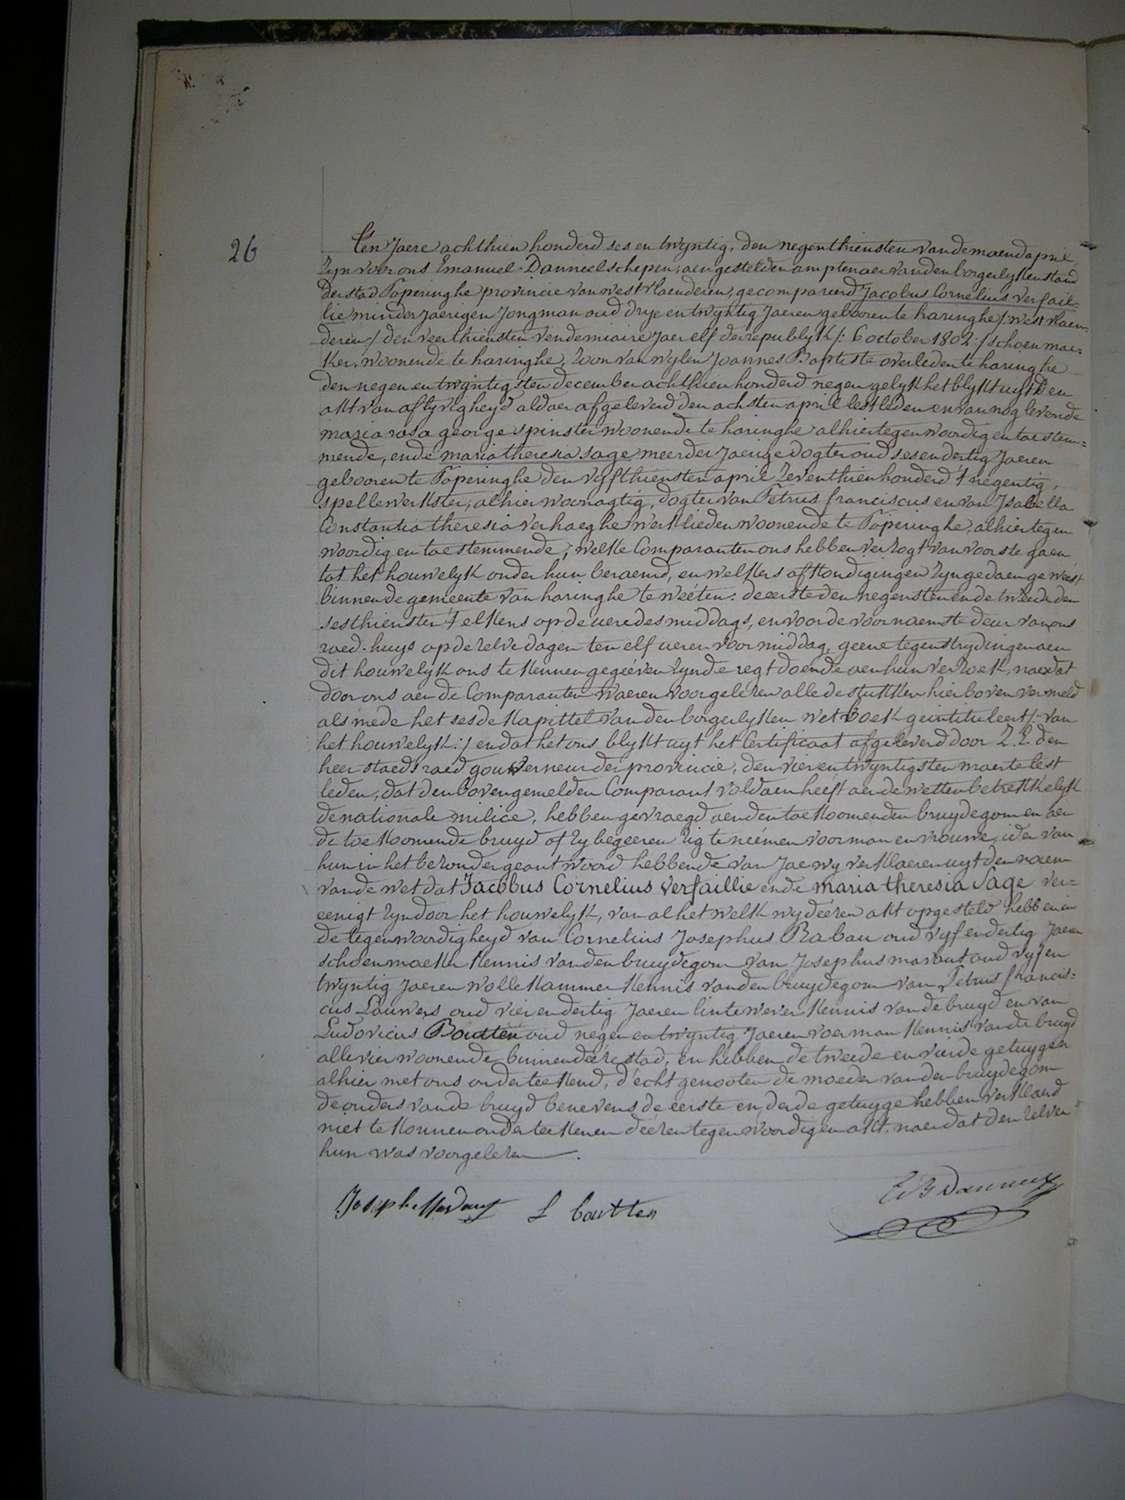 26
Ten Jaere achthien honderd ses en twyntig, den negenthiensten van de maend april
zyn voor ons Emanuel Danneel schepen, aengestelden amptenaer van den borgerlyken stand
der stad Poperinghe provincie van westvlaenderen, gecompareerd Jacobus Cornelius Verfail-
lie minderjaerigen Jongman oud drye en twyntig Jaeren gebooren te haringhe /: west vlaen-
deren / den veerthiensten vendemiaire Jaer elf der republyk /: 6 october 1802 :/ schoenmae-
ker, woonende te haringhe, zoon van wylen Joannes Baptiste overleden te haringhe
den negen en twyntigsten december achthien honderd negen gelyk het blykt uyt den
akt van aflyvigheyd aldaer afgeleverd den achsten april lestleden en van nog levende
maria rosa george spinster woonende te haringhe alhier tegenwoordig en toestem-
mende, ende maria theresia sage meerder Jaerige dogter oud ses en dertig Jaeren
gebooren te Poperinghe den vyfthiensten april zeventhien honderd 't negentig,
spellewerkster, alhier woonagtig, dogter van Petrus franciscus en van Isabella
Constantia theresia verhaeghe werklieden woonende te Poperinghe, alhier tegen
woordig en toestemmende; welke Comparanten ons hebben verzogt van voorste gaen
tot het houwelyk onder hun beraemd, en welkers afkondigingen zyn gedaen geweest
binnen de gemeente van haringhe te weéten: de eerste den negensten en de tweede den
sesthiensten 't elkens op de uere des middags, en voor de voornaemste deur van ons
raed-huys op de zelve dagen ten elf ueren voormiddag, geene tegenstrydingen aen
dit houwelyk ons te kennen gegeéven zynde regt doende aen hun verzoek, naer dat
door ons aen de Comparanten waeren voorgelezen alle de stukken hier boven vermeld
als mede het sesde kapittel van den borgerlyken wet Boek geintituleert /: van
het houwelyk :/ en dat het ons blykt uyt het Certificaat afgeleverd door Z. E. den
heer staeds raed gouverneur der provincie, den vier en twyntigsten maerte lest
leden, dat den bovengemelden Comparant voldaen heeft aen de wetten betrekkelyk
de nationale milice, hebben gevraegd aen den toekoomenden bruydegom en aen
de toekoomende bruyd of zy begeeren zig te neémen voor man en vrouwe, ider van
hun in het bezonder geantwoord hebbende van Jae wy verklaeren uyt den naem
van de wet dat Jacobus Cornelius Verfaillie ende maria theresia Sage ver-
eenigt zyn door het houwelyk, van al het welk wy deézen akt opgesteld hebben in
de tegenwoordigheyd van Cornelius Josephus Rabau oud vyf en dertig Jaeren
schoenmaeker kennis van den bruydegom van Josephus marant oud vyf en
twyntig Jaeren wollekammer kennis van den bruydegom van Petrus francis-
cus Lauwers oud vier en dertig Jaeren lintewever kennis van de bruyd en van
Ludovicus Boutten oud negen en twyntig Jaeren voerman kennis van de bruyd
alle vier woonende binnen deéze stad, en hebben de tweede en vierde getuygen
alhier met ons onderteekend, d'echtgenooten de moeder van den bruydegom
de ouders van de bruyd benevens de eerste en derde getuyge hebben verklaerd
niet te konnen onderteekenen deézen tegenwoordigen akt, naer dat den zelven
hun was voorgelezen.
L boutten